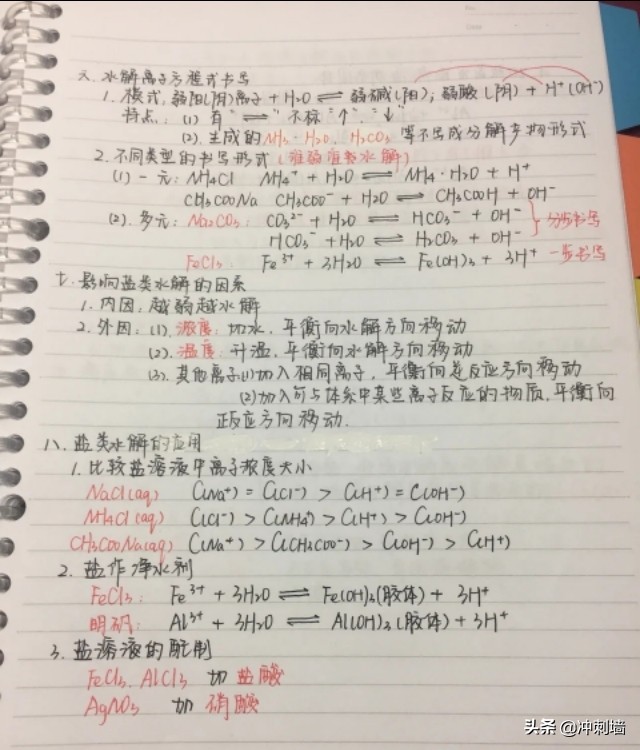 六. 水解离子方程式书写
1. 模式: 弱阳(阴)离子 + H₂O ⇌ 弱碱(阳); 弱酸(阴) + H⁺(OH⁻)
特点: (1) 有 "⇌" 不标 "↑". "↓"
(2). 生成的NH₃·H₂O. H₂CO₃ 等不写成分解产物形式
2. 不同类型的书写形式 (谁弱谁就水解)
(1) 一元: NH₄Cl NH₄⁺ + H₂O ⇌ NH₄·H₂O + H⁺
CH₃COONa CH₃COO⁻ + H₂O ⇌ CH₃COOH + OH⁻
(2). 多元: Na₂CO₃: CO₃²⁻ + H₂O ⇌ HCO₃⁻ + OH⁻ } 分步书写
HCO₃⁻ + H₂O ⇌ H₂CO₃ + OH⁻
FeCl₃ Fe³⁺ + 3H₂O ⇌ Fe(OH)₃ + 3H⁺ 一步书写
七. 影响盐类水解的因素
1. 内因: 越弱越水解
2. 外因: (1). 浓度: 加水, 平衡向水解方向移动
(2). 温度: 升温, 平衡向水解方向移动
(3). 其他离子(1)加入相同离子, 平衡向逆反应方向移动
(2)加入可与体系中某些离子反应的物质, 平衡向
正反应方向移动.
八. 盐类水解的应用
1. 比较盐溶液中离子浓度大小
NaCl(aq) C(Na⁺) = C(Cl⁻) > C(H⁺) = C(OH⁻)
NH₄Cl(aq) C(Cl⁻) > C(NH₄⁺) > C(H⁺) > C(OH⁻)
CH₃COONa(aq) C(Na⁺) > C(CH₃COO⁻) > C(OH⁻) > C(H⁺)
2. 盐作净水剂
FeCl₃: Fe³⁺ + 3H₂O ⇌ Fe(OH)₃(胶体) + 3H⁺
明矾: Al³⁺ + 3H₂O ⇌ Al(OH)₃(胶体) + 3H⁺
3. 盐溶液的配制
FeCl₃. AlCl₃ 加 盐酸
AgNO₃ 加 硝酸
头条 @冲刺墙